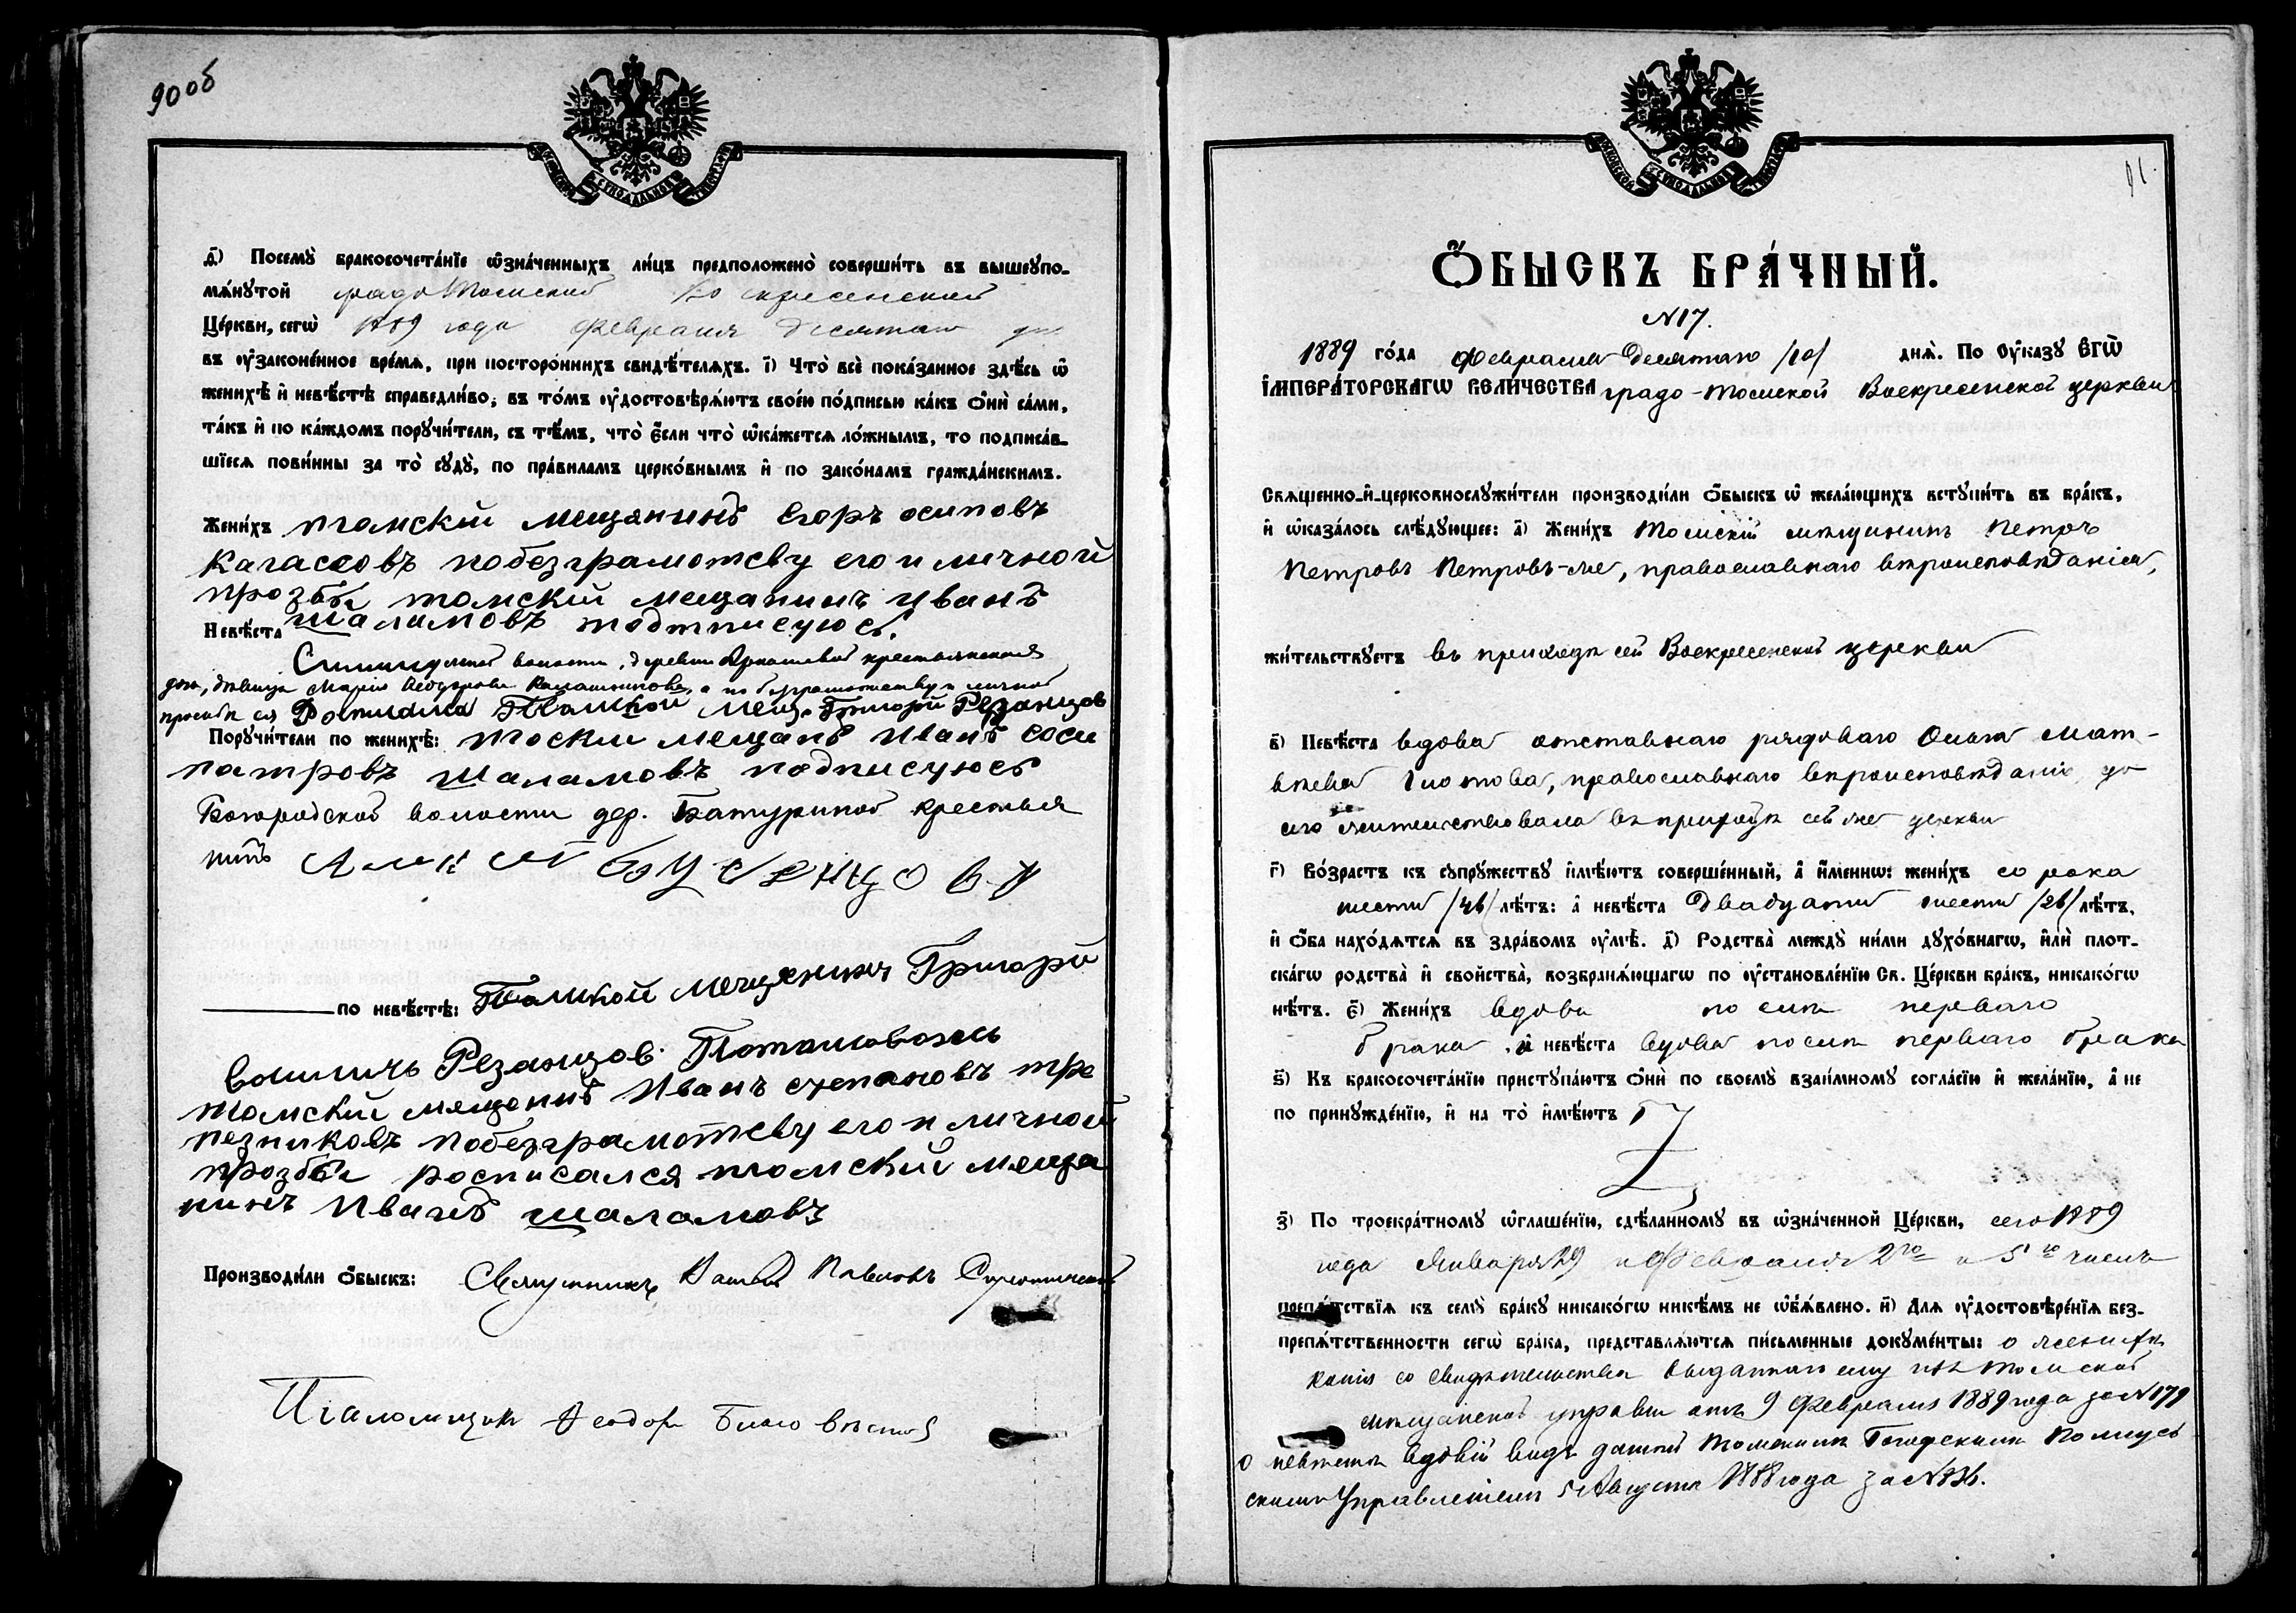 90 об
д҃) Посемꙋ̀ бракосочета́нїе ѡ҆зна́ченныхъ ли́цъ предположено̀ соверши́ть въ вышеꙋпо-
мѧ́нꙋтой градо Томской Воскресенской
Це́ркви, сегѡ̀ 1889 года февраля десятаго дня
въ ᲂу҆законе́нное вре́мѧ, при посторо́ннихъ свидѣ́телѧхъ. і҃) Что̀ всѐ пока́занное здѣ́сь ѡ҆
женихѣ̀ и҆ невѣ́стѣ справедли́во, въ то́мъ ᲂу҆достовѣрѧ́ютъ свое́ю по́дписью ка́къ ѻ҆нѝ са́ми,
та́къ и҆ по ка́ждомъ порꙋчи́тели, съ тѣ́мъ, что̀ є҆́сли что̀ ѡ҆ка́жетсѧ ло́жнымъ, то подписа́в-
шїесѧ пови́нны за то̀ сꙋдꙋ̀, по пра́виламъ церко́внымъ и҆ по зако́намъ гражда́нскимъ.
Жени́хъ томскїи мещанинъ Егоръ осиповъ
Кагассовъ побезграмотсву его и личной
прозбы томскїи мещанинъ иванъ
Невѣ́ста шаламовъ подтписуюсь.
волости, деревни крестьянская
дочь, дѣвица Марія Ѳеодорова Калашникова, а по безграмотству и личной
просьбѣ ея Томской мещ. Григорій Резанцов
Порꙋчи́тели по женихѣ̀: тоски мещанъ иванъ соси
патровъ шаламовъ подписуюсь
Богородской волости дер. Батуриной крестья
нинъ
по невѣ́стѣ: Томской мещенинъ Григорій
Резанцов.
томскїи мещенинъ Иванъ степановъ тре
пезниковъ побезграмотсву его и личной
прозбы росписался томскїи меща
нинъ Иванъ шаламовъ
Производи́ли ѻ҆́быскъ: Священникъ Павловъ
Псаломщик Ѳеодоръ
91.
Ѻ҆́БЫСКЪ БРА́ЧНЫЙ.
N 17.
1889 го́да февраля десятаго /10/ днѧ̀. По Оу҆ка́зꙋ Є҆гѡ̀
І҆мпера́торскагѡ Вели́чества градо-Томской Воскресенской церкви
Свѧще́нно-и҆-церковнослꙋжи́тели производи́ли ѻ҆́быскъ ѡ҆ жела́ющихъ вступи́ть въ бра́къ,
и҆ ѡ҆каза́лось слѣ́дꙋющее: а҃) Жени́хъ Томскій мѣщанинъ Петръ
Петровъ Петровъ-же, православнаго вѣроисповѣданія,
жи́тельствꙋетъ въ приходѣ сей Воскресенской церкви
в҃) Невѣ́ста вдова отставнаго рядоваго Ольга Мат-
вѣева православнаго вѣроисповѣданія, до
сего жительствовала въ приходѣ сей же церкви
г҃) Во́зрастъ къ сꙋпрꙋ́жествꙋ и҆мѣ́ютъ соверше́нный, а҆ и҆́меннѡ: жени́хъ сорока
шести /46/ лѣ́тъ: а҆ невѣ́ста двадцати шести /26/ лѣ́тъ,
и҆ ѻ҆́ба нахо́дѧтсѧ въ здра́вомъ ᲂу҆мѣ̀. д҃) Родства̀ междꙋ̀ ни́ми дꙋхо́внагѡ, и҆лѝ плот-
ска́гѡ родства̀ и҆ сво́йства̀, возбранѧ́ющагѡ по ᲂу҆становле́нїю Св. Це́ркви бра́къ, никако́гѡ
нѣ́тъ. є҃) Жени́хъ вдовъ послѣ перваго
брака, а҆ невѣ́ста вдова послѣ перваго брака
ѕ҃) Къ бракосочета́нїю пристꙋпа́ютъ ѻ҆нѝ по своемꙋ̀ взаи́мномꙋ согла́сїю и҆ жела́нїю, а҆ не
по принꙋжде́нїю, и҆ на то̀ и҆мѣ́ютъ
з҃) По троекра́тномꙋ ѡ҆глаше́нїю, сдѣ́ланномꙋ въ ѡ҆зна́ченной Це́ркви, сего 1889
года Января 29 и Февраля 2го и 5го числъ
препѧ́тствїѧ къ семꙋ̀ бра́кꙋ никако́гѡ никѣ́мъ не ѡ҆б̾ѧ́влено. и҃) Длѧ ᲂу҆достовѣре́нїѧ без-
препѧ́тственности сегѡ̀ бра́ка, представлѧ́ютсѧ пи́сьменные докꙋме́нты: о женихѣ
копія со свидѣтельства выданнаго ему изъ Томской
мѣщанской управы отъ 9 Февраля 1889 года за N 179
о невѣстѣ вдовій видъ данный Томскимъ Городскимъ Полицей
скимъ Управленіемъ 5 Августа 1888 года за N 836.